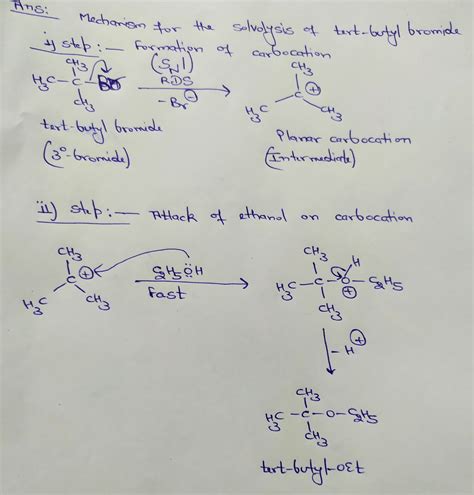 Ans:
Mechanism for the solvolysis of tert-butyl bromide
i) step:— Formation of carbocation
CH3 (SN1) CH3
H3C–C–Br RDS C ⊕
CH3 –Br⊖ H3C CH3
tert-butyl bromide Planar carbocation
(3°-bromide) (Intermediate)
ii) step:— Attack of ethanol on carbocation
CH3 CH3 H
C ⊕ C2H5ÖH H3C–C–O–C2H5
H3C CH3 Fast ⊕
CH3
–H⊕
CH3
H3C–C–O–C2H5
CH3
tert-butyl-OEt